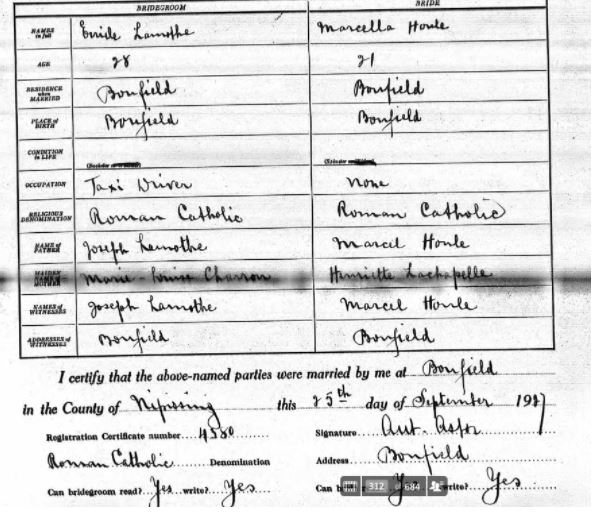 BRIDEGROOM BRIDE
NAMES in full Emile Lamothe Marcella Houle
AGE 28 21
RESIDENCE when MARRIED Bonfield Bonfield
PLACE of BIRTH Bonfield Bonfield
CONDITION in LIFE (Bachelor (Spinster
OCCUPATION Taxi Driver none
RELIGIOUS DENOMINATION Roman Catholic Roman Catholic
NAME of FATHER Joseph Lamothe Marcel Houle
MAIDEN NAME of MOTHER Marie-Louise Charron Henriette Lachapelle
NAMES of WITNESSES Joseph Lamothe Marcel Houle
ADDRESSES of WITNESSES Bonfield Bonfield
I certify that the above-named parties were married by me at Bonfield
in the County of Nipissing this 25th day of September 1927
Registration Certificate number 4580 Signature Ant.
Roman Catholic Denomination Address Bonfield
Can bridegroom read? Yes write? Yes Can write? Yes
312 of 684